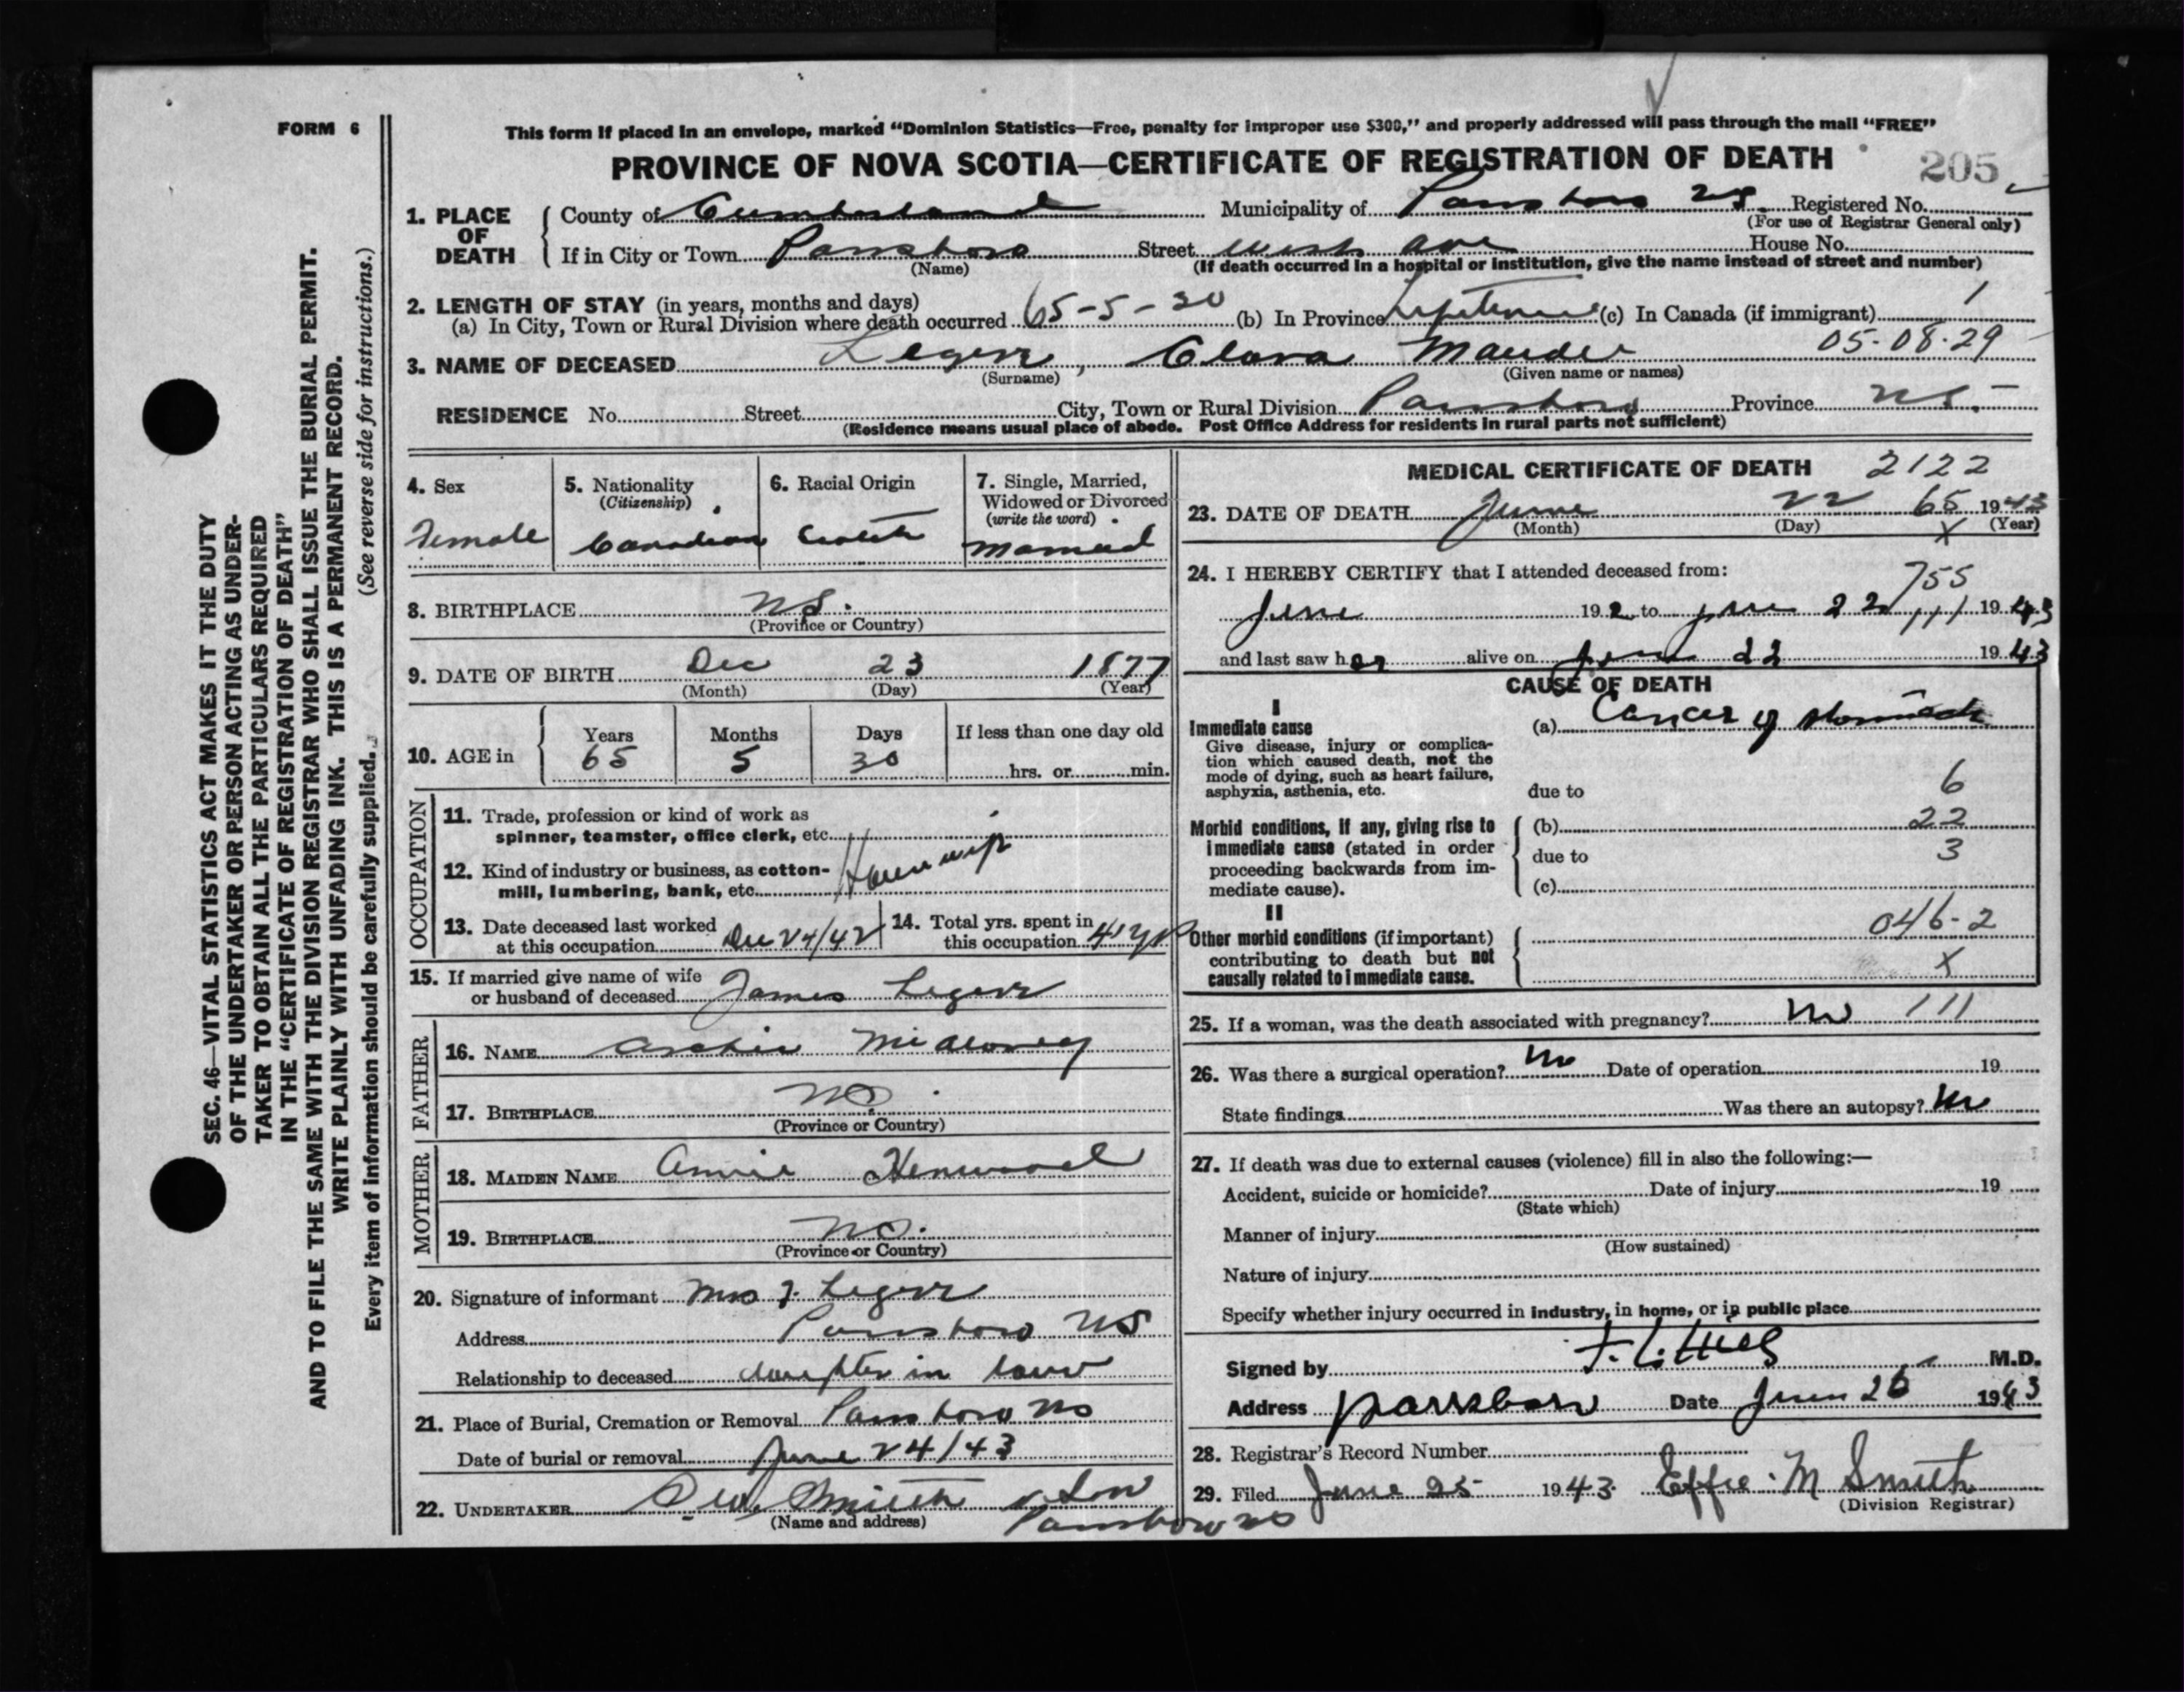 FORM 6
This form if placed in an envelope, marked “Dominion Statistics—Free, penalty for improper use $300,” and properly addressed will pass through the mail “FREE”
PROVINCE OF NOVA SCOTIA—CERTIFICATE OF REGISTRATION OF DEATH
205
1. PLACE OF DEATH
County of Cumberland Municipality of Parrsboro NS. Registered No.
(For use of Registrar General only)
If in City or Town Parrsboro Street West Ave House No.
(Name) (If death occurred in a hospital or institution, give the name instead of street and number)
2. LENGTH OF STAY (in years, months and days)
(a) In City, Town or Rural Division where death occurred 65-5-30 (b) In Province Lifetime (c) In Canada (if immigrant) 1
05-08-29
3. NAME OF DECEASED Clara Maude
(Surname) (Given name or names)
RESIDENCE No. Street City, Town or Rural Division Parrsboro Province NS.
(Residence means usual place of abode. Post Office Address for residents in rural parts not sufficient)
4. Sex Female
5. Nationality (Citizenship) Canadian
6. Racial Origin Scotch
7. Single, Married, Widowed or Divorced (write the word) Married
8. BIRTHPLACE NS.
(Province or Country)
9. DATE OF BIRTH Dec 23 1877
(Month) (Day) (Year)
10. AGE in Years 65 Months 5 Days 30 If less than one day old
hrs. or min.
OCCUPATION
11. Trade, profession or kind of work as
spinner, teamster, office clerk, etc.
12. Kind of industry or business, as cotton-
mill, lumbering, bank, etc. Housewife
13. Date deceased last worked
at this occupation Dec 24/42
14. Total yrs. spent in
this occupation 41 yrs
15. If married give name of wife
or husband of deceased James
FATHER
16. NAME Archie
17. BIRTHPLACE NS.
(Province or Country)
MOTHER
18. MAIDEN NAME Annie Henwood
19. BIRTHPLACE NS.
(Province or Country)
20. Signature of informant Mrs J.
Address Parrsboro NS
Relationship to deceased daughter in law
21. Place of Burial, Cremation or Removal Parrsboro NS
Date of burial or removal June 24/43
22. UNDERTAKER Smith & Son
(Name and address) Parrsboro NS
MEDICAL CERTIFICATE OF DEATH 2122
23. DATE OF DEATH June 22 65 1943
(Month) (Day) X (Year)
24. I HEREBY CERTIFY that I attended deceased from:
755
June 192 to June 22 1943
and last saw her alive on June 22 1943
CAUSE OF DEATH
I
Immediate cause
Give disease, injury or complica-
tion which caused death, not the
mode of dying, such as heart failure,
asphyxia, asthenia, etc.
(a) Cancer of stomach
due to 6
Morbid conditions, if any, giving rise to
immediate cause (stated in order
proceeding backwards from im-
mediate cause).
(b) 22
due to 3
(c)
II
Other morbid conditions (if important)
contributing to death but not
causally related to immediate cause.
046-2
X
25. If a woman, was the death associated with pregnancy? No 111
26. Was there a surgical operation? No Date of operation 19
State findings Was there an autopsy? No
27. If death was due to external causes (violence) fill in also the following:—
Accident, suicide or homicide? Date of injury 19
(State which)
Manner of injury
(How sustained)
Nature of injury
Specify whether injury occurred in industry, in home, or in public place
Signed by M.D.
Address Parrsboro Date June 26 1943
28. Registrar's Record Number
29. Filed June 25 1943 Effie M Smith
(Division Registrar)
SEC. 46—VITAL STATISTICS ACT MAKES IT THE DUTY
OF THE UNDERTAKER OR PERSON ACTING AS UNDER-
TAKER TO OBTAIN ALL THE PARTICULARS REQUIRED
IN THE “CERTIFICATE OF REGISTRATION OF DEATH”
AND TO FILE THE SAME WITH THE DIVISION REGISTRAR WHO SHALL ISSUE THE BURIAL PERMIT.
WRITE PLAINLY WITH UNFADING INK. THIS IS A PERMANENT RECORD.
Every item of information should be carefully supplied. (See reverse side for instructions.)